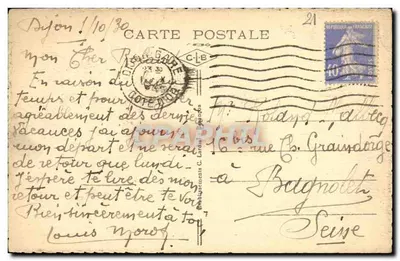 Dijon 1/10/30
CARTE POSTALE
21
Mon Cher
DIJON GARE
CÔTE D'OR
C L B
En raison du
temps et pour
agréablement des derniers
vacances j'ai ajourné
mon départ et ne serai
de retour que lundi.
J'espère te lire dès mon
retour et peut être te voir
Bien sincèrement à toi
Louis
16 bis rue Ch. Graindorge
à Bagnolet
Seine